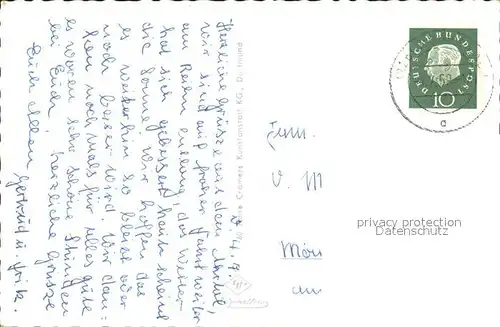 Herzliche Grüsse aus dem Ahrtal,
wir sind auf froher Fahrt weiter
am Rhein entlang, das Wetter
hat sich gebessert, heute scheint
die Sonne. Wir hoffen das
es weiterhin so bleibt oder
noch besser wird. Wir dan-
ken nochmals für alles gute
es waren sehr schöne Stunden
bei Euch, herzliche Grüsse
Euch allen Gertrud u. Fritz.
Cramers Kunstanstalt KG., Dortmund
DEUTSCHE BUNDESPOST
10
Fam.
V. M
Mör
am
privacy protection
oldthing.de